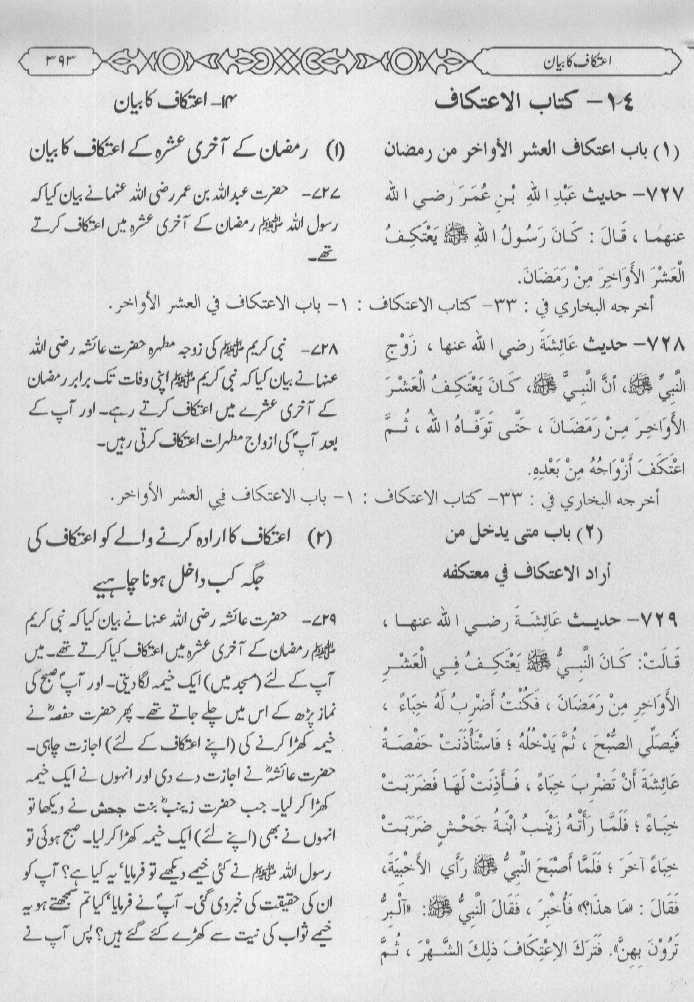 اعتکاف کا بیان
۳۹۳
١٤- كتاب الاعتكاف
(١) باب اعتكاف العشر الأواخر من رمضان
٧٢٧- حديث عَبْدِ اللهِ بْنِ عُمَرَ رضي الله
عنهما ، قَالَ : كَانَ رَسُولُ اللهِ ﷺ يَعْتَكِفُ
الْعَشْرَ الأَوَاخِرَ مِنْ رَمَضَانَ.
۱۴- اعتکاف کا بیان
(۱) رمضان کے آخری عشرہ کے اعتکاف کا بیان
۷۲۷- حضرت عبداللہ بن عمر رضی اللہ عنہما نے بیان کیا کہ
رسول اللہ ﷺ رمضان کے آخری عشرہ میں اعتکاف کرتے
تھے۔
أخرجه البخاري في : ٣٣- كتاب الاعتكاف : ١- باب الاعتكاف في العشر الأواخر.
٧٢٨- حديث عَائِشَةَ رضي الله عنها ، زَوْجِ
النَّبِيِّ ﷺ، أَنَّ النَّبِيَّ ﷺ، كَانَ يَعْتَكِفُ الْعَشْرَ
الأَوَاخِرَ مِنْ رَمَضَانَ ، حَتَّى تَوَفَّاهُ اللهُ ، ثُمَّ
اعْتَكَفَ أَزْوَاجُهُ مِنْ بَعْدِهِ.
۷۲۸- نبی کریم ﷺ کی زوجہ مطہرہ حضرت عائشہ رضی اللہ
عنہا نے بیان کیا کہ نبی کریم ﷺ اپنی وفات تک برابر رمضان
کے آخری عشرے میں اعتکاف کرتے رہے۔ اور آپ کے
بعد آپؐ کی ازواج مطہرات اعتکاف کرتی رہیں۔
أخرجه البخاري في : ٣٣- كتاب الاعتكاف : ١- باب الاعتكاف في العشر الأواخر.
(٢) باب متى يدخل من
أراد الاعتكاف في معتكفه
٧٢٩- حديث عَائِشَةَ رضي الله عنها ،
قَالَتْ: كَانَ النَّبِيُّ ﷺ يَعْتَكِفُ فِي الْعَشْرِ
الأَوَاخِرِ مِنْ رَمَضَانَ ، فَكُنْتُ أَضْرِبُ لَهُ خِبَاءً ،
فَيُصَلِّي الصُّبْحَ ، ثُمَّ يَدْخُلُهُ ؛ فَاسْتَأْذَنَتْ حَفْصَةُ
عَائِشَةَ أَنْ تَضْرِبَ خِبَاءً ، فَأَذِنَتْ لَهَا فَضَرَبَتْ
خِبَاءً ؛ فَلَمَّا رَأَتْهُ زَيْنَبُ ابْنَةُ جَحْشٍ ضَرَبَتْ
خِبَاءً آخَرَ ؛ فَلَمَّا أَصْبَحَ النَّبِيُّ ﷺ رَأَى الأَخْبِيَةَ،
فَقَالَ : «مَا هٰذَا؟» فَأُخْبِرَ ، فَقَالَ النَّبِيُّ ﷺ: «آلْبِرُّ
تَرَوْنَ بِهِنَّ». فَتَرَكَ الاِعْتِكَافَ ذلِكَ الشَّهْرَ ، ثُمَّ
(۲) اعتکاف کا ارادہ کرنے والے کو اعتکاف کی
جگہ کب داخل ہونا چاہیے
۷۲۹- حضرت عائشہ رضی اللہ عنہا نے بیان کیا کہ نبی کریم
ﷺ رمضان کے آخری عشرہ میں اعتکاف کیا کرتے تھے۔ میں
آپ کے لئے (مسجد میں) ایک خیمہ لگا دیتی۔ اور آپؐ صبح کی
نماز پڑھ کے اس میں چلے جاتے تھے۔ پھر حضرت حفصہؓ نے
خیمہ کھڑا کرنے کی (اپنے اعتکاف کے لئے) اجازت چاہی۔
حضرت عائشہؓ نے اجازت دے دی اور انہوں نے ایک خیمہ
کھڑا کر لیا۔ جب حضرت زینبؓ بنت جحش نے دیکھا تو
انہوں نے بھی (اپنے لئے) ایک خیمہ کھڑا کر لیا۔ صبح ہوئی تو
رسول اللہ ﷺ نے کئی خیمے دیکھے تو فرمایا‘ یہ کیا ہے؟ آپ کو
ان کی حقیقت کی خبر دی گئی۔ آپؐ نے فرمایا‘ کیا تم سمجھتے ہو یہ
خیمے ثواب کی نیت سے کھڑے کئے گئے ہیں؟ پس آپ نے